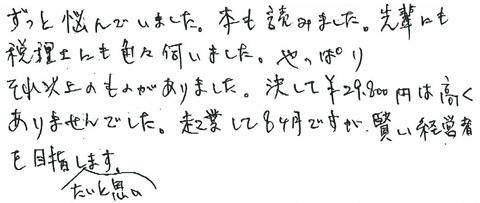 ずっと悩んでいました。本も読みました。先輩にも
税理士にも色々伺いました。やっぱり
それ以上のものがありました。決して¥29.800円は高く
ありませんでした。起業して8ヶ月ですが、賢い経営者
を目指します。
たいと思い